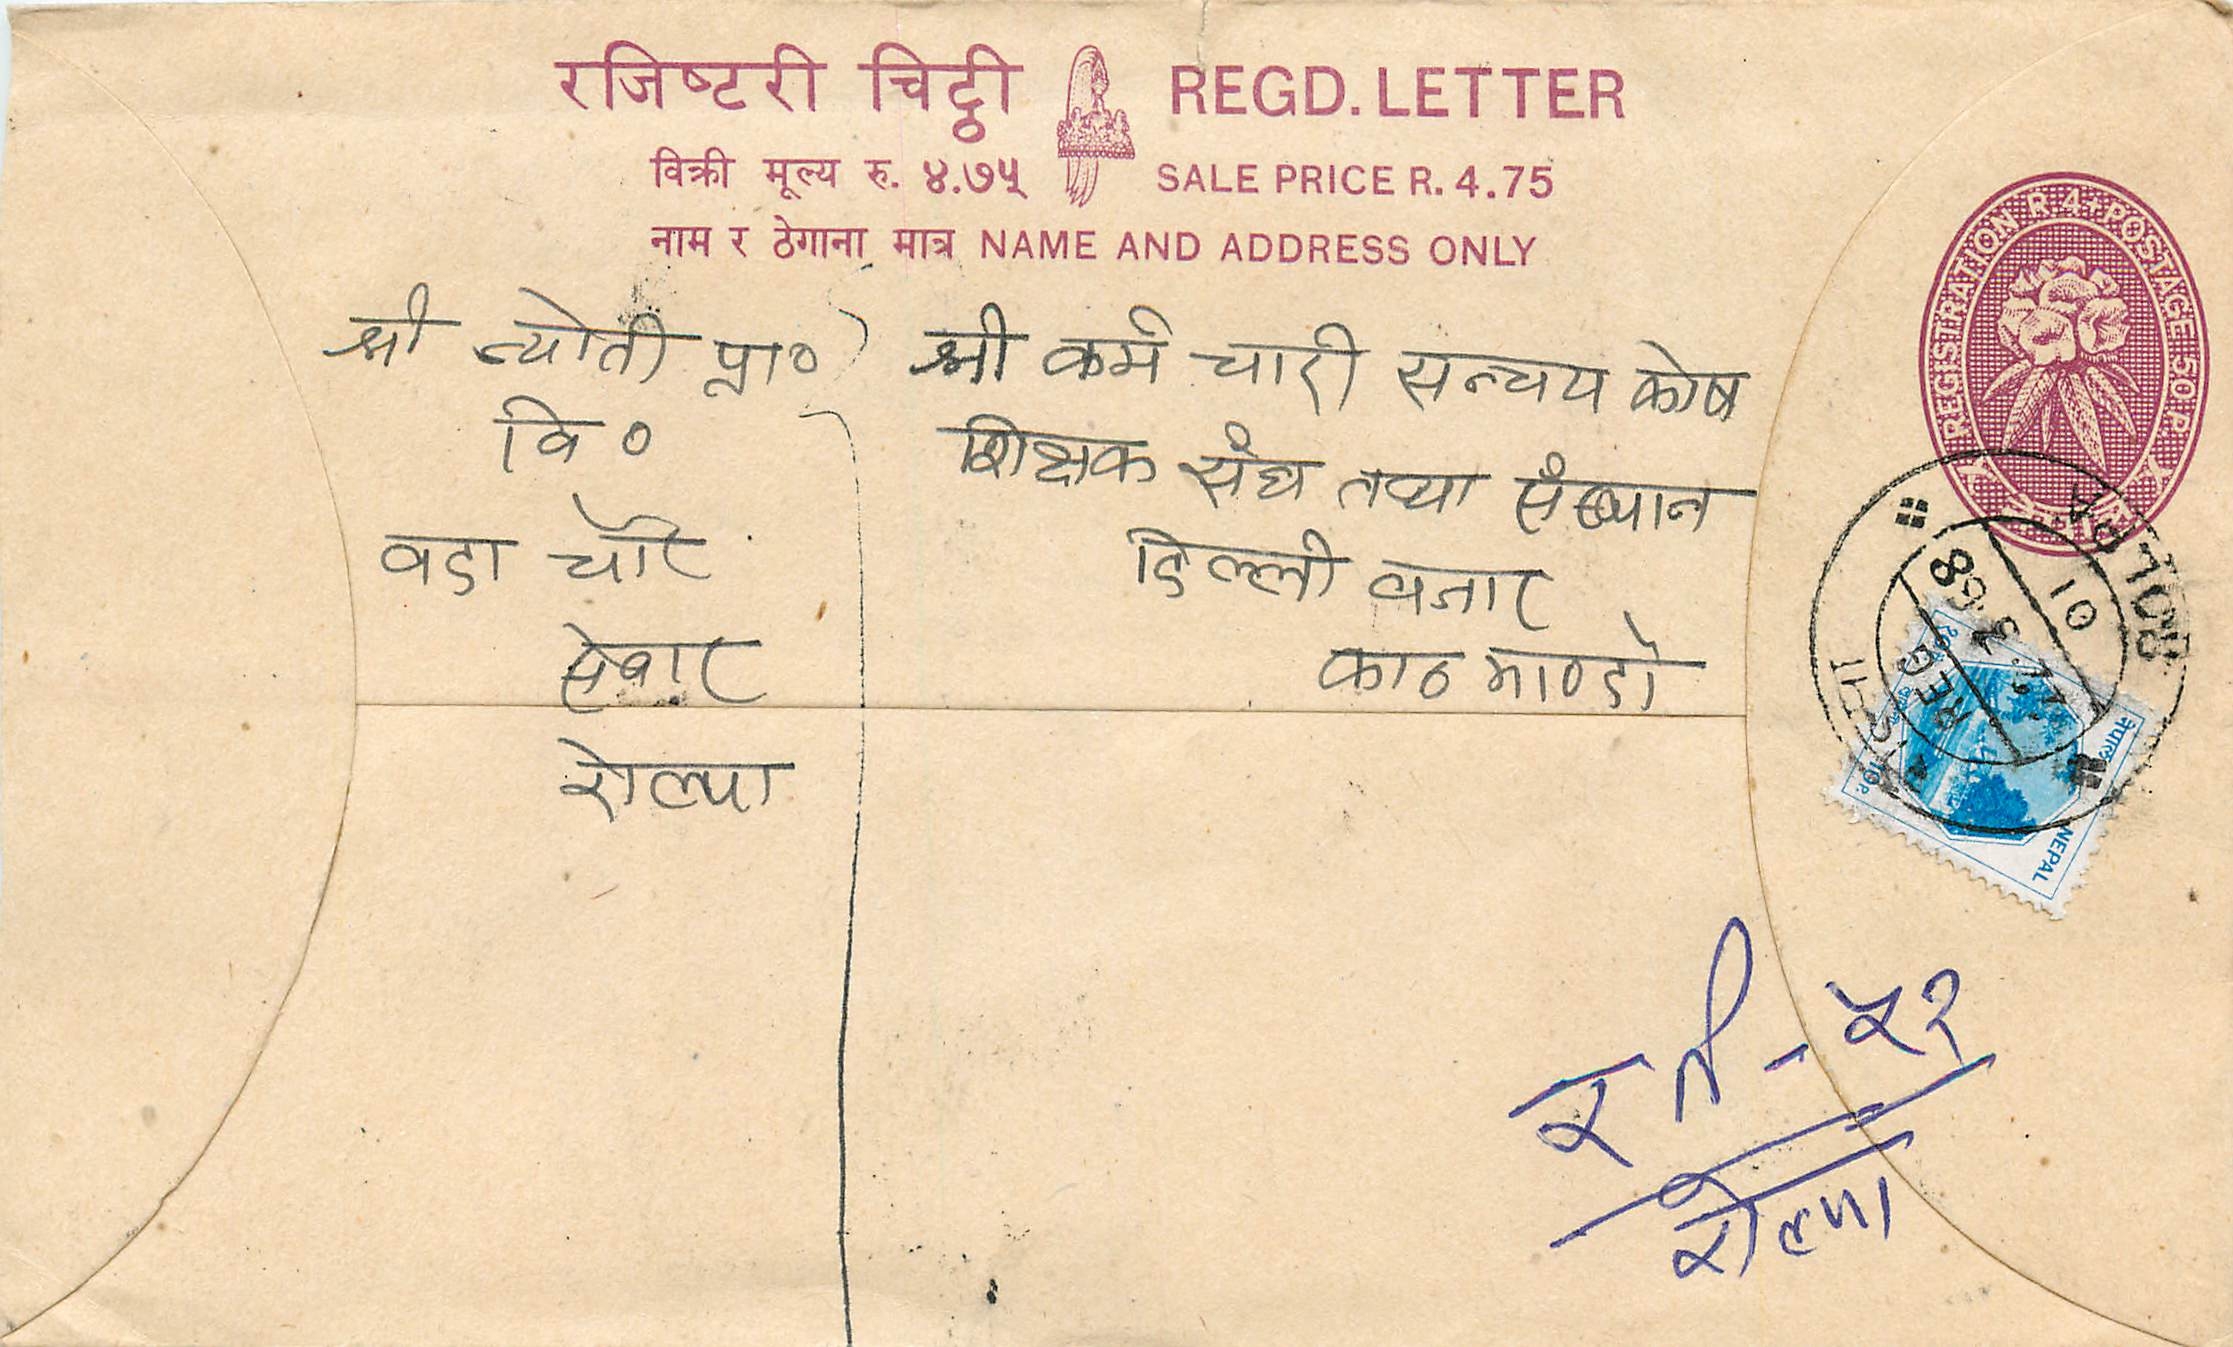 रजिष्टरी चिट्ठी REGD. LETTER
विक्री मूल्य रु. ४.७५ SALE PRICE R. 4.75
नाम र ठेगाना मात्र NAME AND ADDRESS ONLY
REGISTRATION R 4+POSTAGE 50 P.
श्री ज्योती प्रा०
वि०
वडा चौर
सेवार
रोल्पा
श्री कर्म चारी सन्चय कोष
शिक्षक संघ तथा संस्थान
डिल्ली वजार
काठमाण्डौ
ROLPA
10
REG
नेपाल
NEPAL
10P.
र र्ता - ५१
रोल्पा